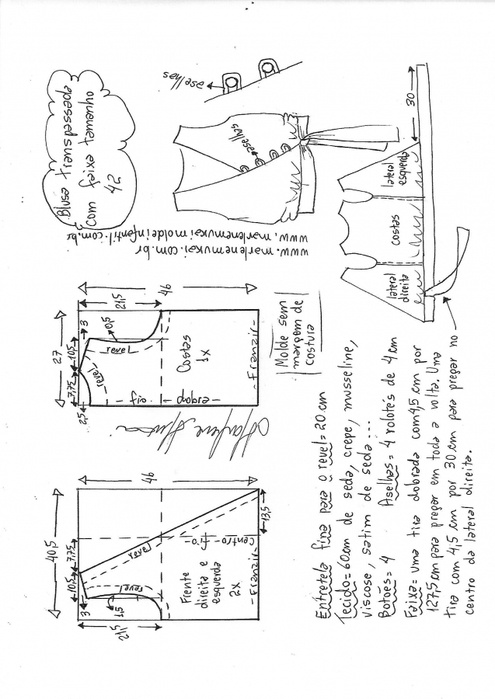 Blusa transpassada
com faixa tamanho
42
aselhas
aselhas
www.marlenemukai.com.br
www.marlenemukaimoldeinfantil.com.br
30
lateral
esquerda
costas
lateral
direita
46
21,5
3
0,5
27
10,5
7,75
2,5
revel
revel
Costas
1x
fio
dobra
Franzir
Molde sem
margem de
costura
Marlene Mukai
46
40,5
7,75
10,5
3
1,5
21,5
13,5
revel
revel
Centro
fio
Frente
direita e
esquerda
2x
Franzir
Entretela fina para o revel = 20 cm
Tecido = 60 cm de seda, crepe, musseline,
viscose, satim de seda...
Botões = 4 Aselhas = 4 rolotês de 4 cm
Faixa = uma tira dobrada com 4,5 cm por
127,5 cm para pregar em toda a volta. Uma
tira com 4,5 cm por 30 cm para pregar no
centro da lateral direita.